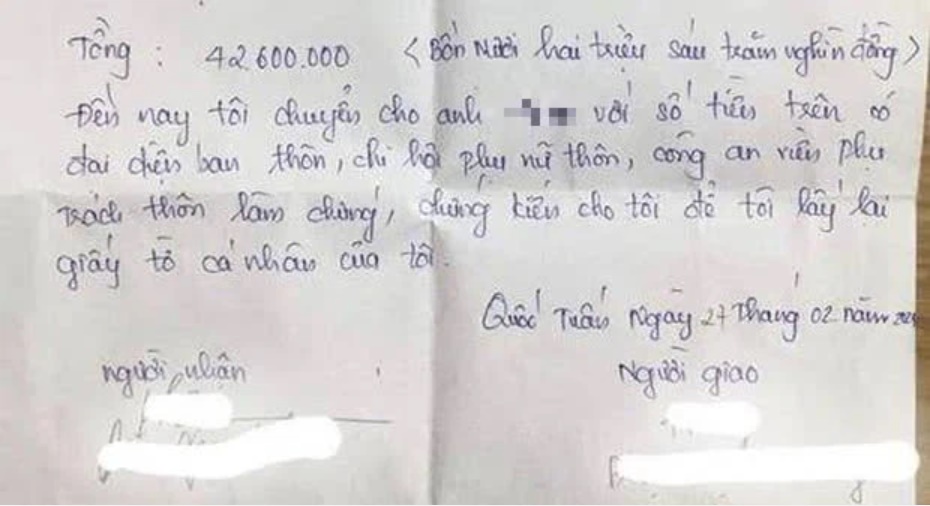 Tổng : 42.600.000 < Bốn Mươi hai triệu sáu trăm nghìn đồng >
Đến nay tôi chuyển cho anh với số tiền trên có
đại diện ban thôn, chi hội phụ nữ thôn, công an viên phụ
trách thôn làm chứng, chứng kiến cho tôi để tôi lấy lại
giấy tờ cá nhân của tôi.
Quốc Tuấn Ngày 27 Tháng 02 năm
người nhận
Người giao